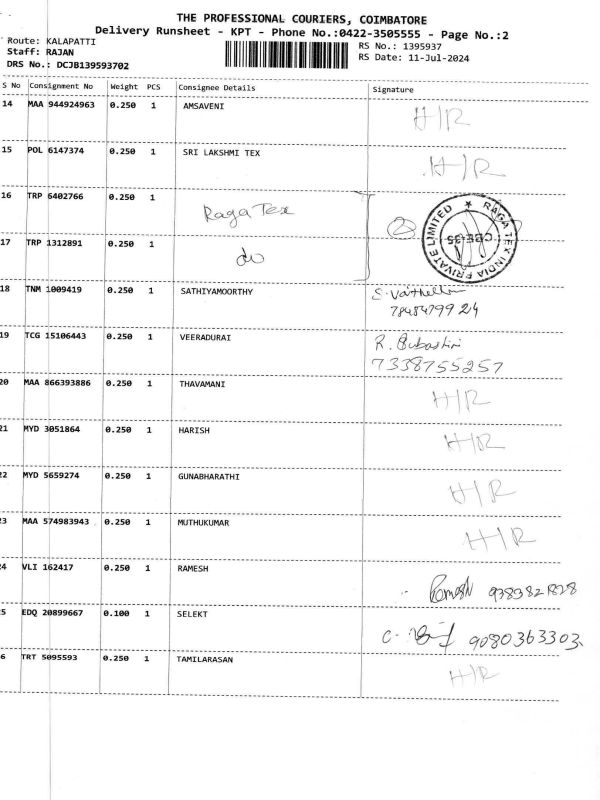 THE PROFESSIONAL COURIERS, COIMBATORE
Delivery Runsheet - KPT - Phone No.:0422-3505555 - Page No.:2
Route: KALAPATTI
RS No.: 1395937
Staff: RAJAN
RS Date: 11-Jul-2024
DRS No.: DCJB139593702
S No Consignment No Weight PCS Consignee Details Signature
14 MAA 944924963 0.250 1 AMSAVENI H/R
15 POL 6147374 0.250 1 SRI LAKSHMI TEX H/R
16 TRP 6402766 0.250 1 Raga Tex
2
RAGA TEX INDIA PRIVATE LIMITED ★
CBE-35
17 TRP 1312891 0.250 1 do
18 TNM 1009419 0.250 1 SATHIYAMOORTHY
19 TCG 15106443 0.250 1 VEERADURAI R.
7338755257
20 MAA 866393886 0.250 1 THAVAMANI H/R
21 MYD 3051864 0.250 1 HARISH H/R
22 MYD 5659274 0.250 1 GUNABHARATHI H/R
23 MAA 574983943 0.250 1 MUTHUKUMAR H/R
24 VLI 162417 0.250 1 RAMESH Ramesh
5 EDQ 20899667 0.100 1 SELEKT 9080363303
6 TRT 5095593 0.250 1 TAMILARASAN H/R